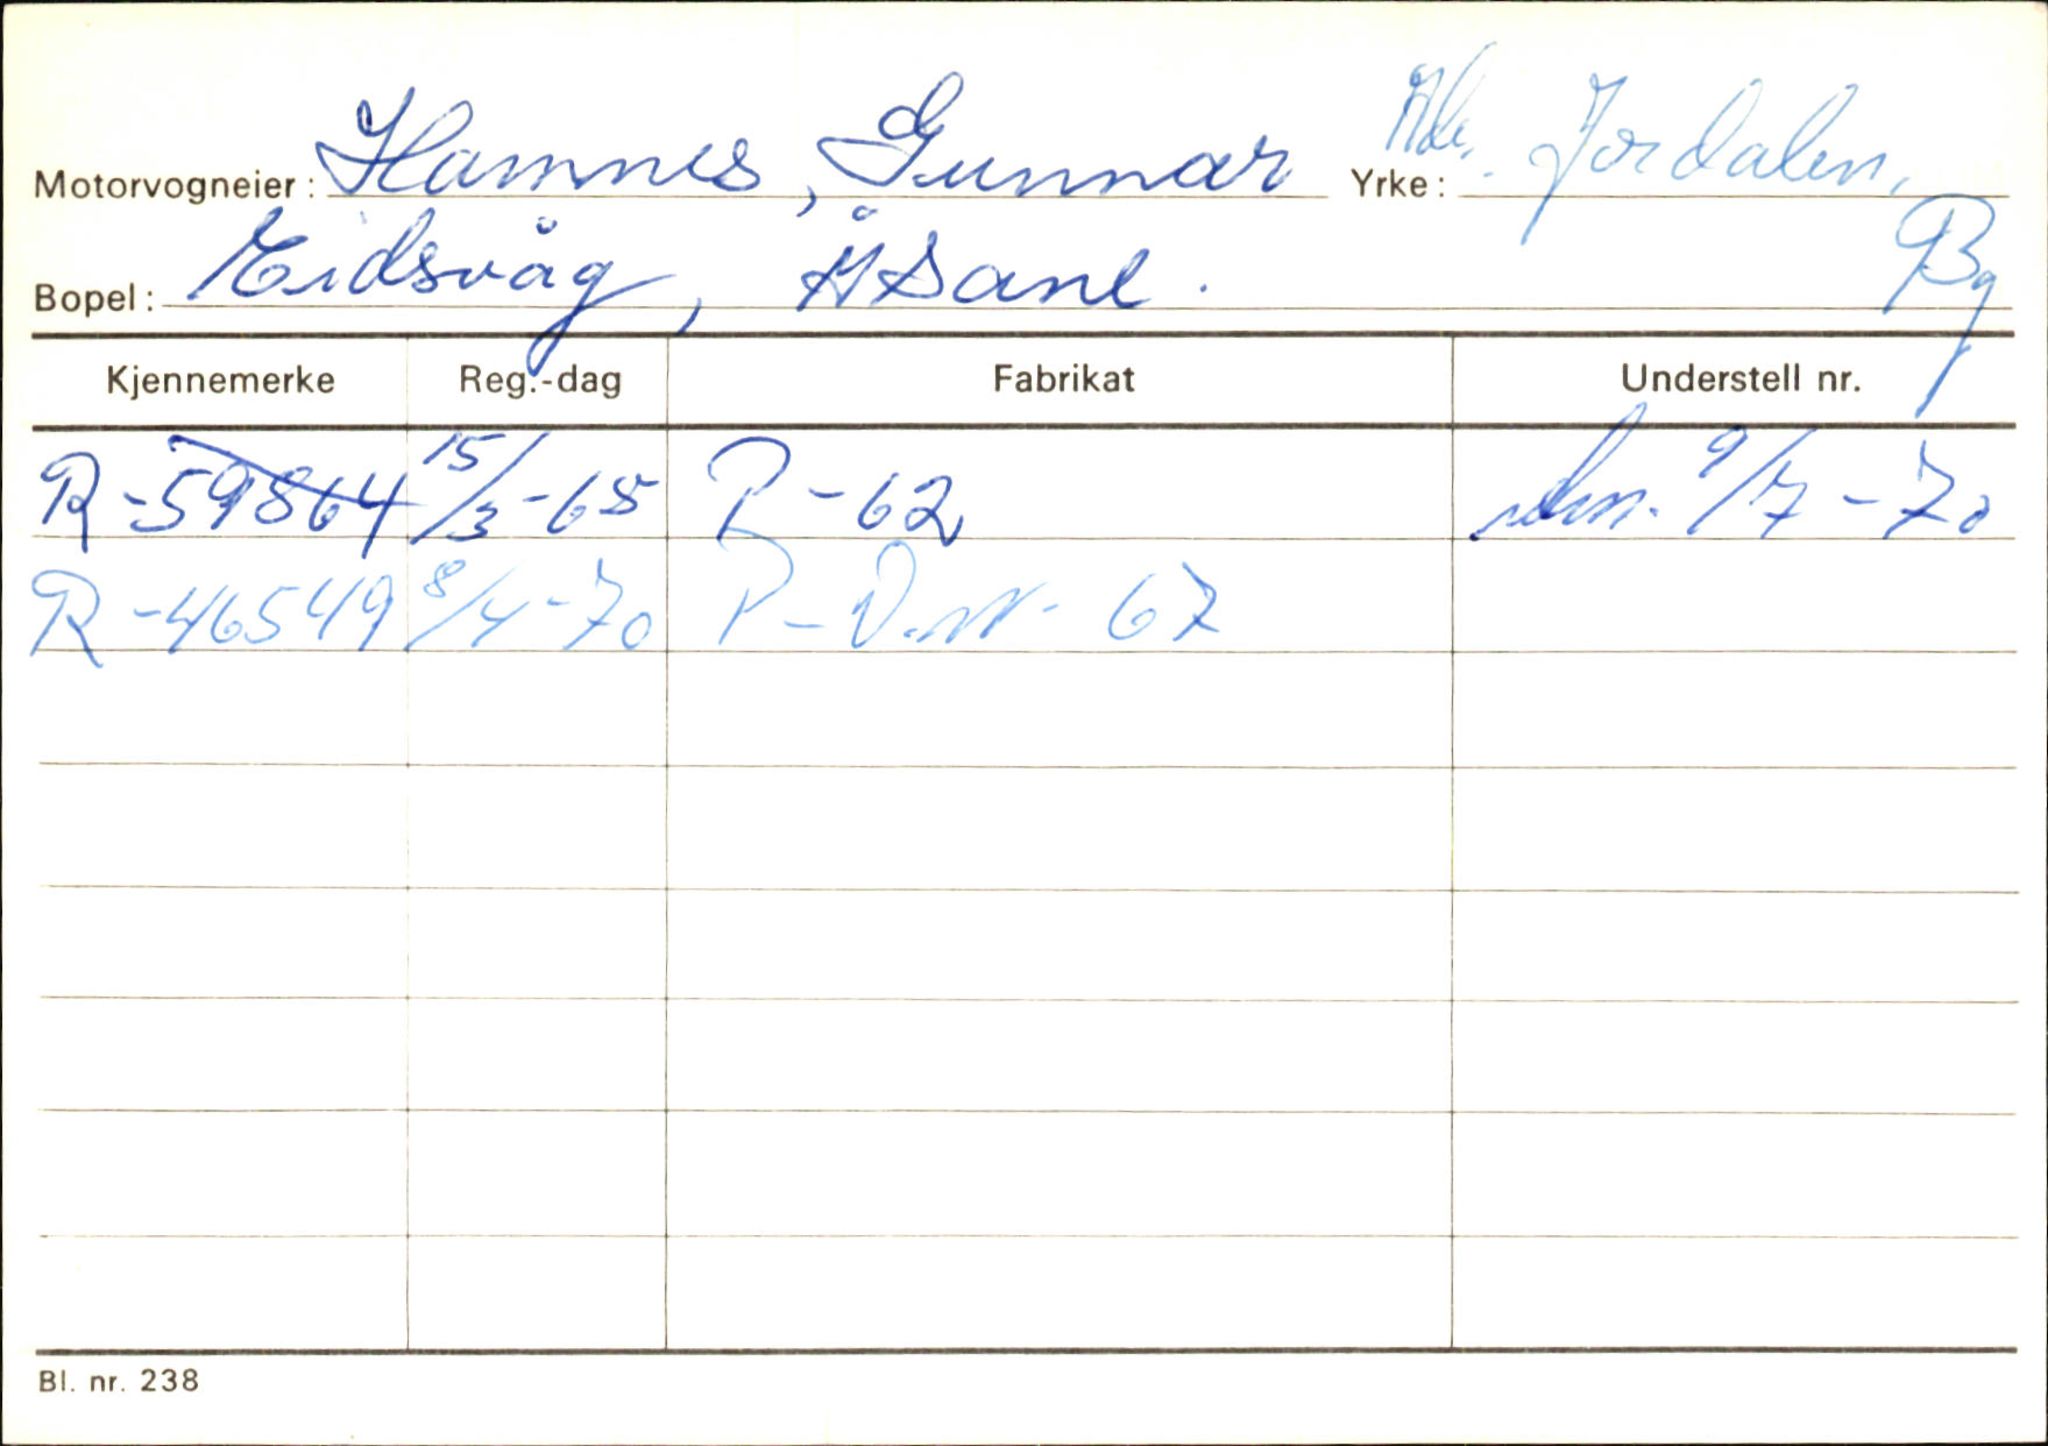 Motorvogneier: Hamnes, Gunnar Yrke: Jordalen,
Bopel: Eidsvåg, Åsane. Bg
Kjennemerke Reg.-dag Fabrikat Understell nr.
R-59864 15/3-68 P-62 9/7-70
R-46549 8/4-70 P-V.W- 67
Bl. nr. 238